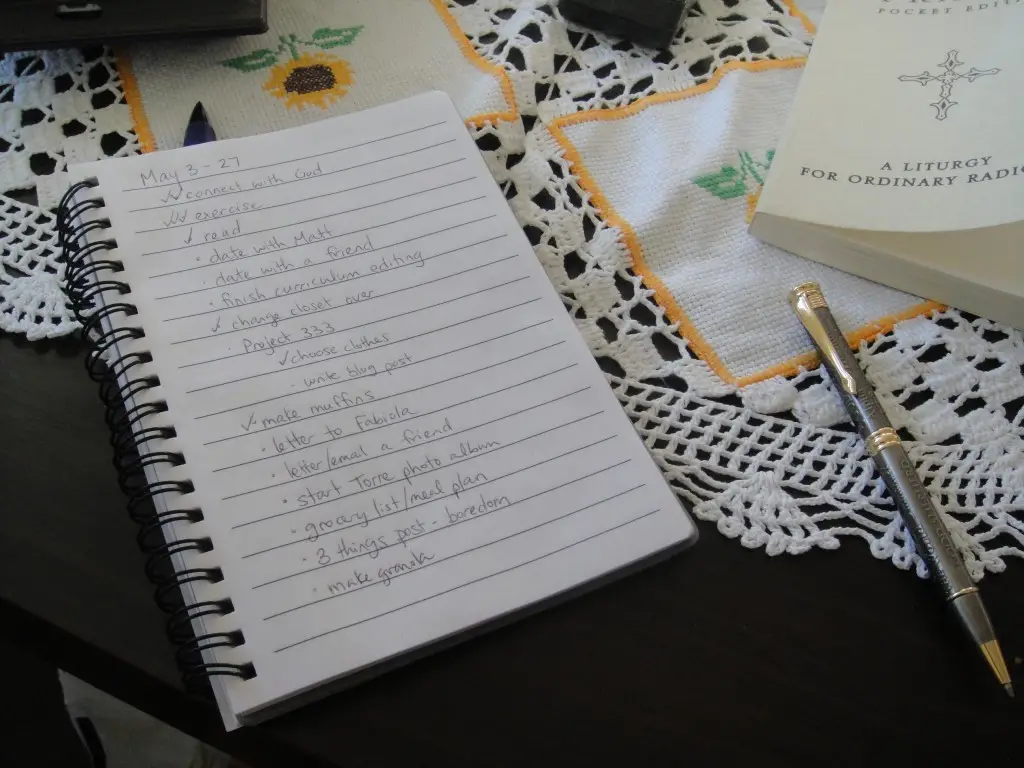 May 3 - 27
✓✓ connect with God
✓✓✓ exercise
✓ read
· date with Matt
· date with a friend
· finish curriculum editing
✓ change closet over
· Project 333
✓ choose clothes
· write blog post
✓ make muffins
· letter to Fabiola
· letter/email a friend
· start Torre photo album
· grocery list/meal plan
· 3 things post - boredom
· make granola
POCKET EDITI
A LITURGY
FOR ORDINARY RADIC